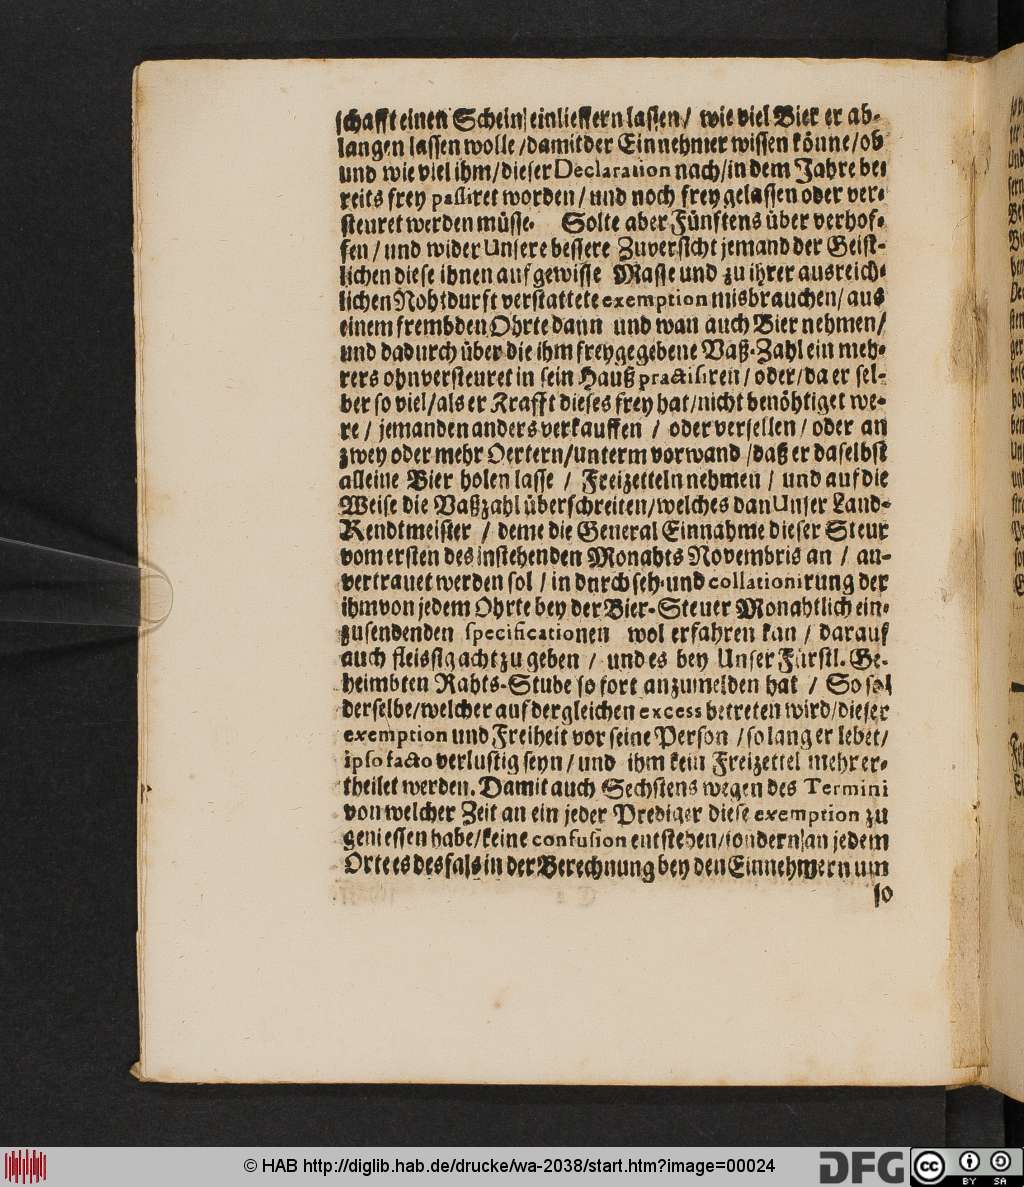 schafft einen Schein einlieffern lassen / wie viel Bier er ab-
langen lassen wolle / damit der Einnehmer wissen könne / ob
und wie viel ihm / dieser Declaration nach / in dem Jahre be-
reits frey passiret worden / und noch frey gelassen oder ver-
steuret werden müsse. Solte aber Fünftens über verhof-
fen / und wider Unsere bessere Zuversicht jemand der Geist-
lichen diese ihnen auf gewisse Masse und zu ihrer ausreich-
lichen Nohtdurft verstattete exemption misbrauchen / aus
einem frembden Ohrte dann und wan auch Bier nehmen /
und dadurch über die ihm freygegebene Vaß-Zahl ein meh-
rers ohnversteuret in sein Hauß practisiren / oder / da er sel-
ber so viel / als er Krafft dieses frey hat / nicht benöhtiget we-
re / jemanden anders verkauffen / oder versellen / oder an
zwey oder mehr Oertern / unterm vorwand / daß er daselbst
alleine Bier holen lasse / Freizetteln nehmen / und auf die
Weise die Vaßzahl überschreiten / welches dan Unser Land-
Rendtmeister / deme die General Einnahme dieser Steur
vom ersten des instehenden Monahts Novembris an / an-
vertrauet werden sol / in durchseh- und collationirung der
ihm von jedem Ohrte bey der Bier-Steuer Monahtlich ein-
zusendenden specificationen wol erfahren kan / darauf
auch fleissig acht zu geben / und es bey Unser Fürstl. Ge-
heimbten Rahts-Stube so fort anzumelden hat / So sol
derselbe / welcher auf dergleichen excess betreten wird / dieser
exemption und Freiheit vor seine Person / so lang er lebet /
ipso facto verlustig seyn / und ihm kein Freizettel mehr er-
theilet werden. Damit auch Sechstens wegen des Termini
von welcher Zeit an ein jeder Prediger diese exemption zu
geniessen habe / keine confusion entstehen / sondern an jedem
Orte es desfals in der Berechnung bey den Einnehmern um
so
© HAB http://diglib.hab.de/drucke/wa-2038/start.htm?image=00024
DFG
cc
BY SA